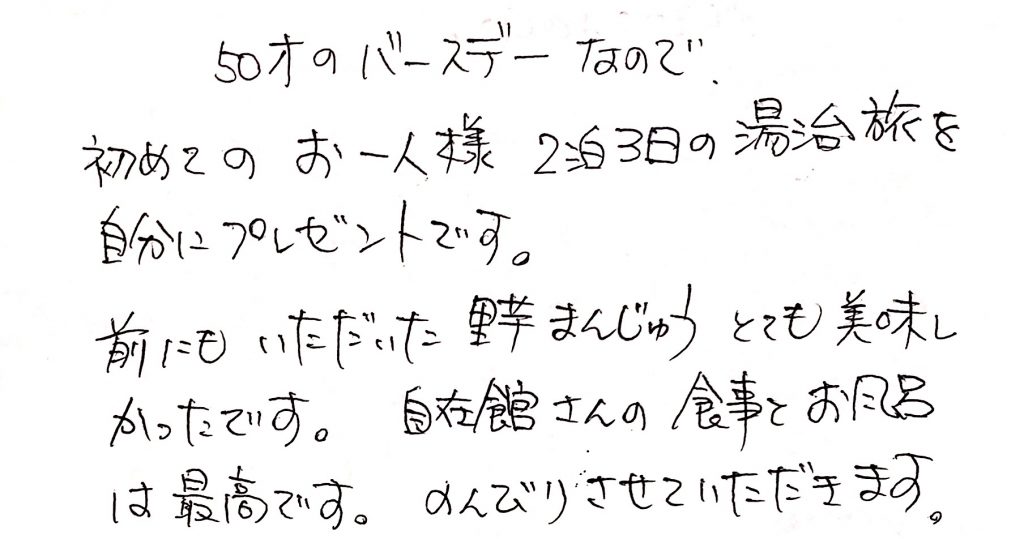 50才のバースデーなので、
初めてのお一人様 2泊3日の湯治旅を
自分にプレゼントです。
前にもいただいた里芋まんじゅう とても美味し
かったです。 自在館さんの食事とお風呂
は最高です。 のんびりさせていただきます。